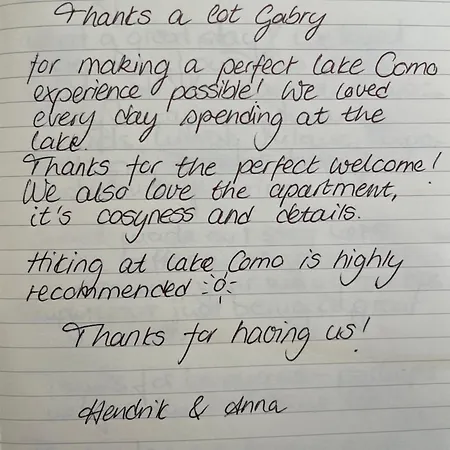 Thanks a lot Gabry
for making a perfect lake Como
experience possible! We loved
every day spending at the
lake.
Thanks for the perfect welcome!
We also love the apartment,
it's cosyness and details.
Hiking at lake Como is highly
recommended
Thanks for having us!
Hendrik & Anna